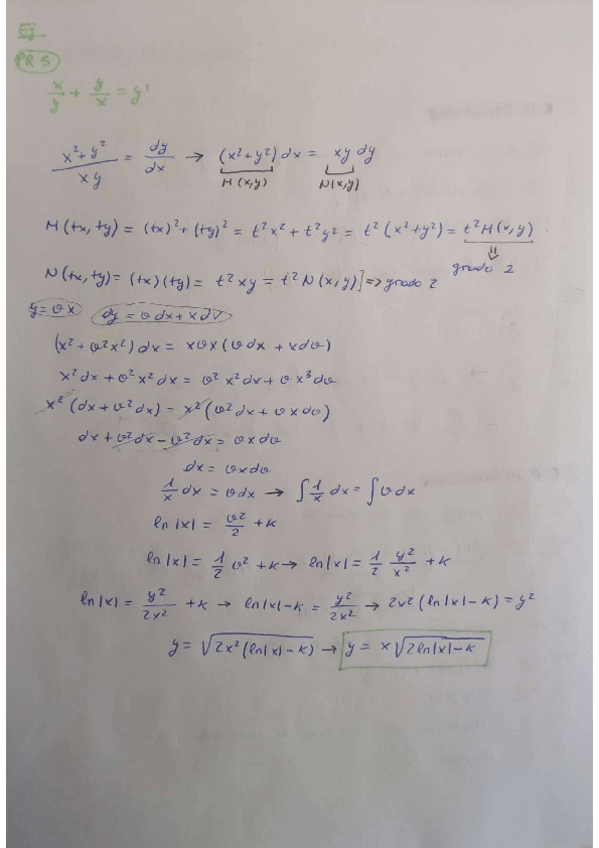 Ej
PR 5
x/y + y/x = y'
(x²+y²)/(xy) = dy/dx → (x²+y²)dx = xy dy
M(x,y) N(x,y)
M(tx,ty) = (tx)²+(ty)² = t²x² + t²y² = t²(x²+y²) = t²M(x,y)
⇓
grado 2
N(tx,ty) = (tx)(ty) = t²xy = t²N(x,y)] ⇒ grado 2
y=vx dy = vdx+xdv
(x²+v²x²)dx = xvx(vdx+xdv)
x²dx+v²x²dx = v²x²dx+vx³dv
x²(dx+v²dx) = x²(v²dx+vxdv)
dx+v²dx-v²dx = vxdv
dx = vxdv
1/x dx = vdx → ∫1/x dx = ∫vdx
ln|x| = v²/2 +k
ln|x| = 1/2 v² +k → ln|x| = 1/2 y²/x² +k
ln|x| = y²/2x² +k → ln|x|-k = y²/2x² → 2x²(ln|x|-k) = y²
y = √(2x²(ln|x|-k)) → y = x√(2ln|x|-k)